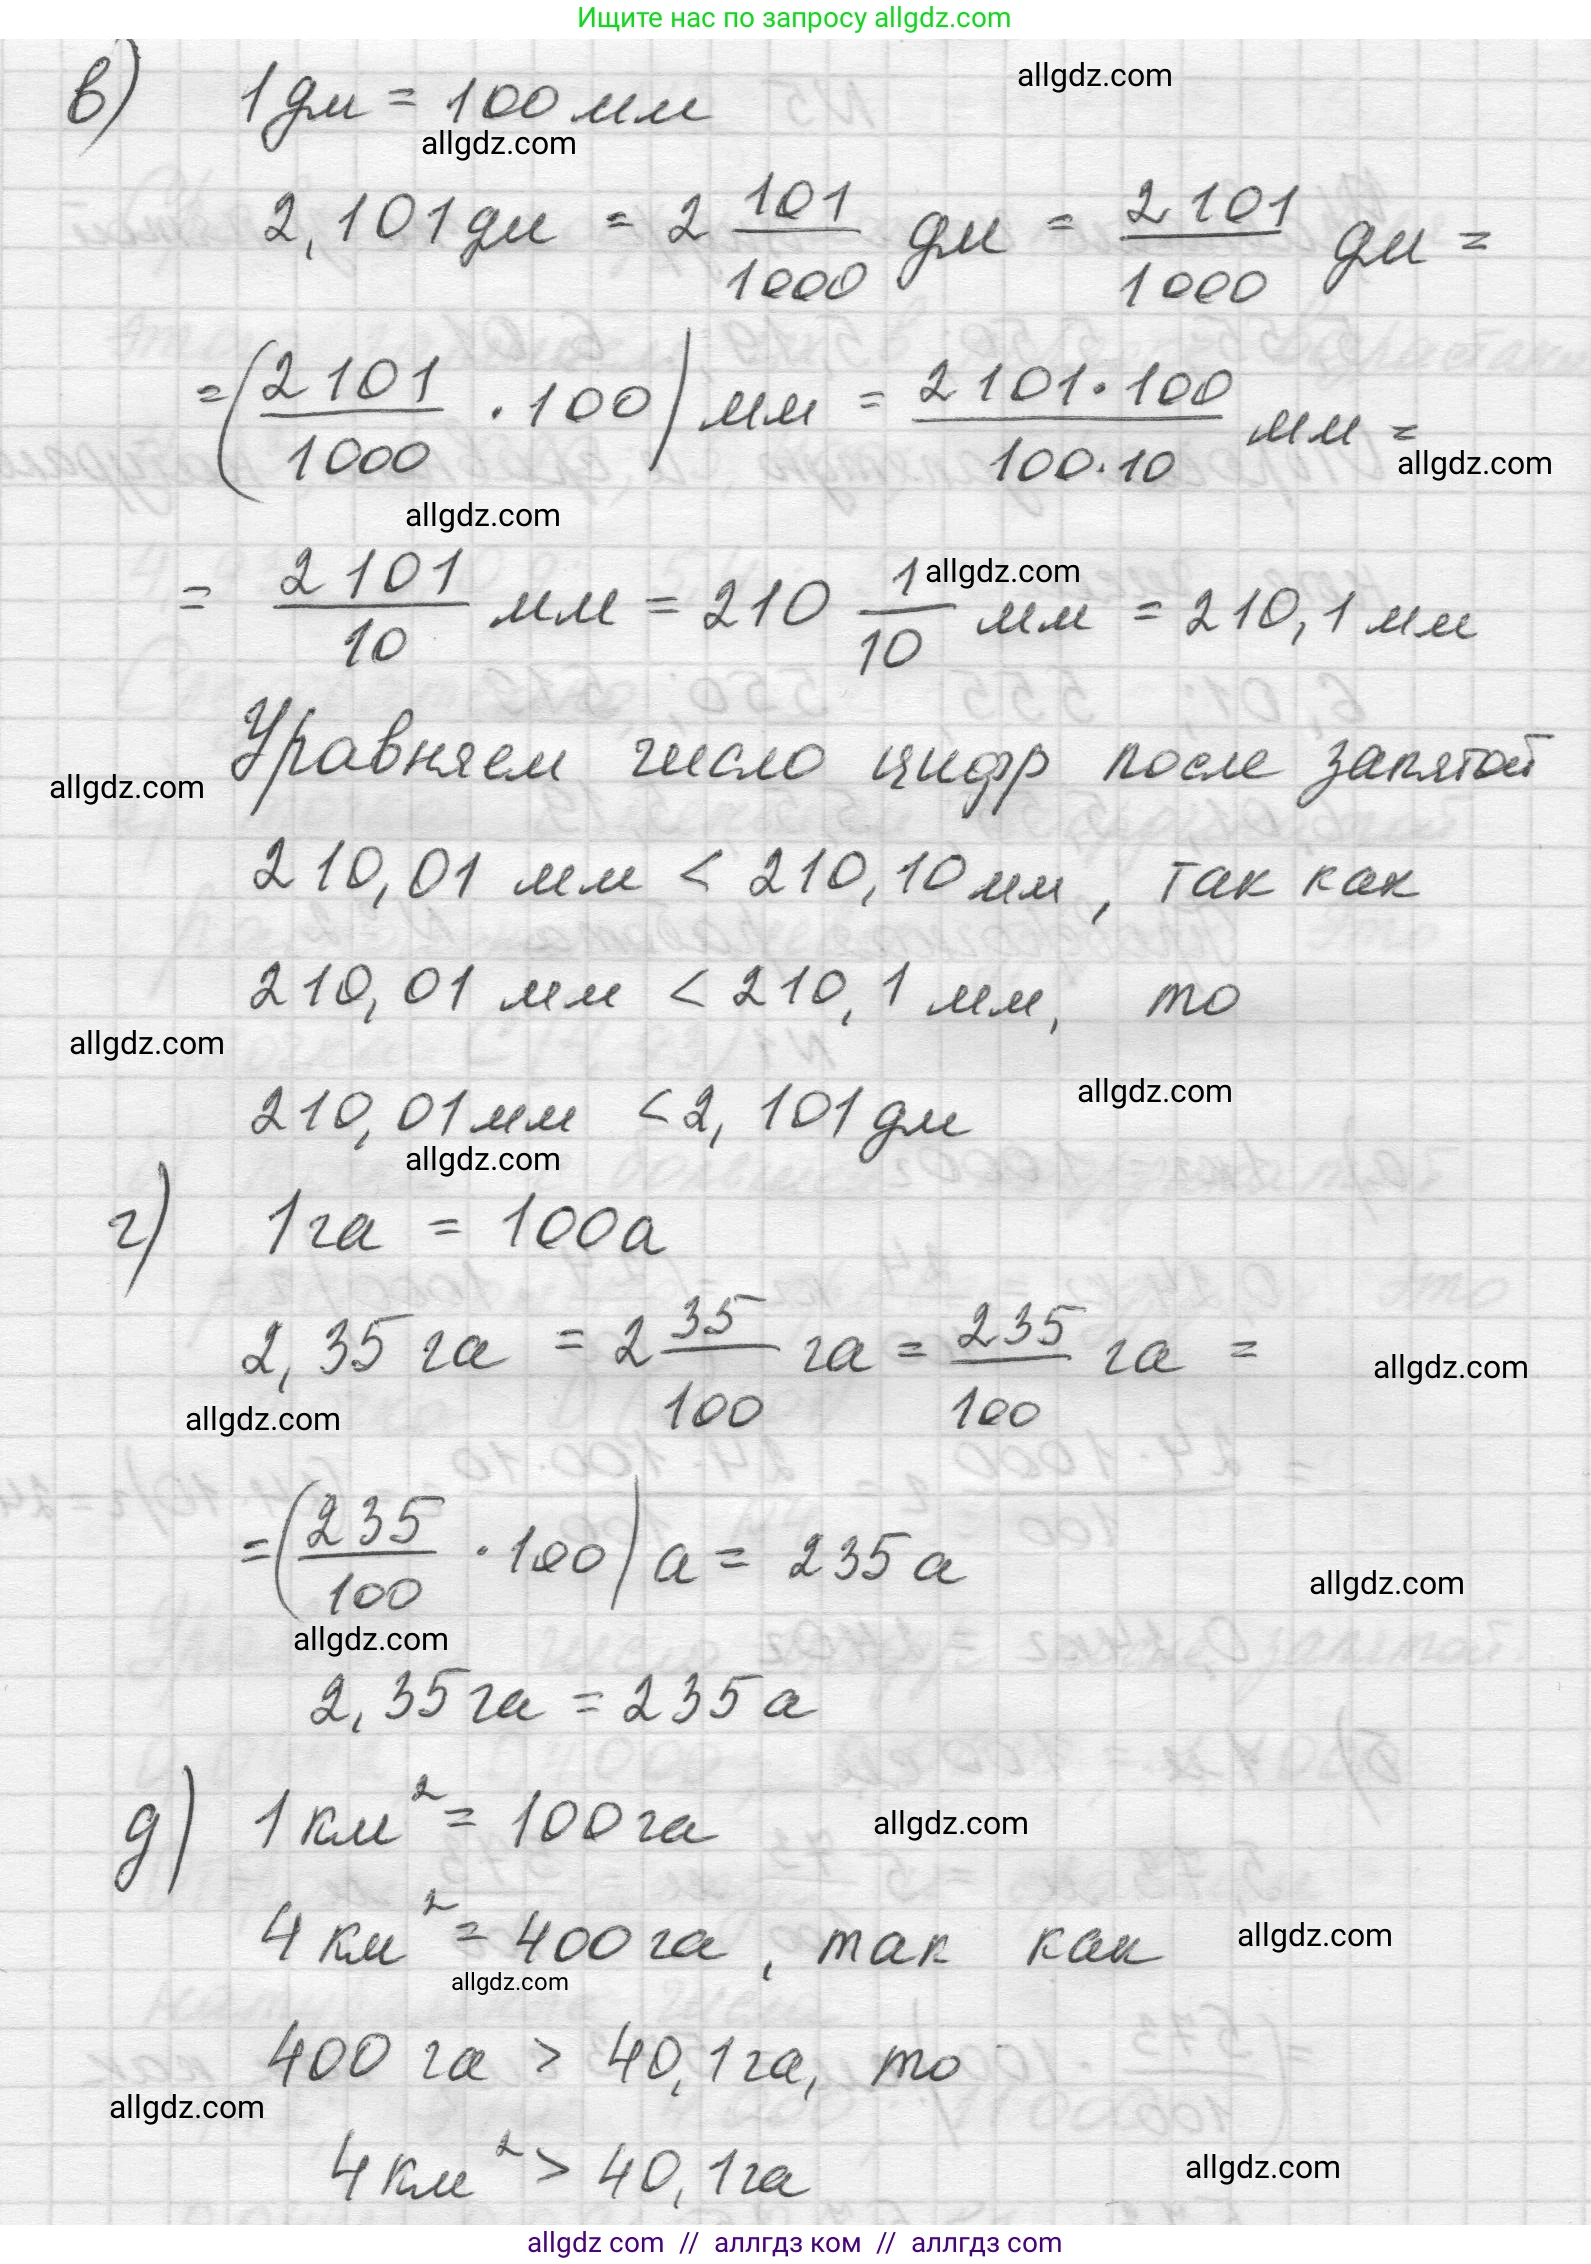 Ищите нас по запросу allgdz.com
allgdz.com
в) 1 дм = 100 мм
allgdz.com
2,101 дм = 2 101/1000 дм = 2101/1000 дм =
= (2101/1000 · 100) мм = 2101·100/100·10 мм =
allgdz.com
allgdz.com
allgdz.com
= 2101/10 мм = 210 1/10 мм = 210,1 мм
Уравняем число цифр после запятой
allgdz.com
210,01 мм < 210,10 мм, так как
210,01 мм < 210,1 мм, то
allgdz.com
allgdz.com
210,01 мм < 2,101 дм
allgdz.com
г) 1 га = 100 а
2,35 га = 2 35/100 га = 235/100 га =
allgdz.com
allgdz.com
= (235/100 · 100) а = 235 а
allgdz.com
allgdz.com
2,35 га = 235 а
д) 1 км² = 100 га
allgdz.com
4 км² = 400 га, так как
allgdz.com
allgdz.com
400 га > 40,1 га, то
allgdz.com
4 км² > 40,1 га
allgdz.com
allgdz com // аллгдз ком // аллгдз com